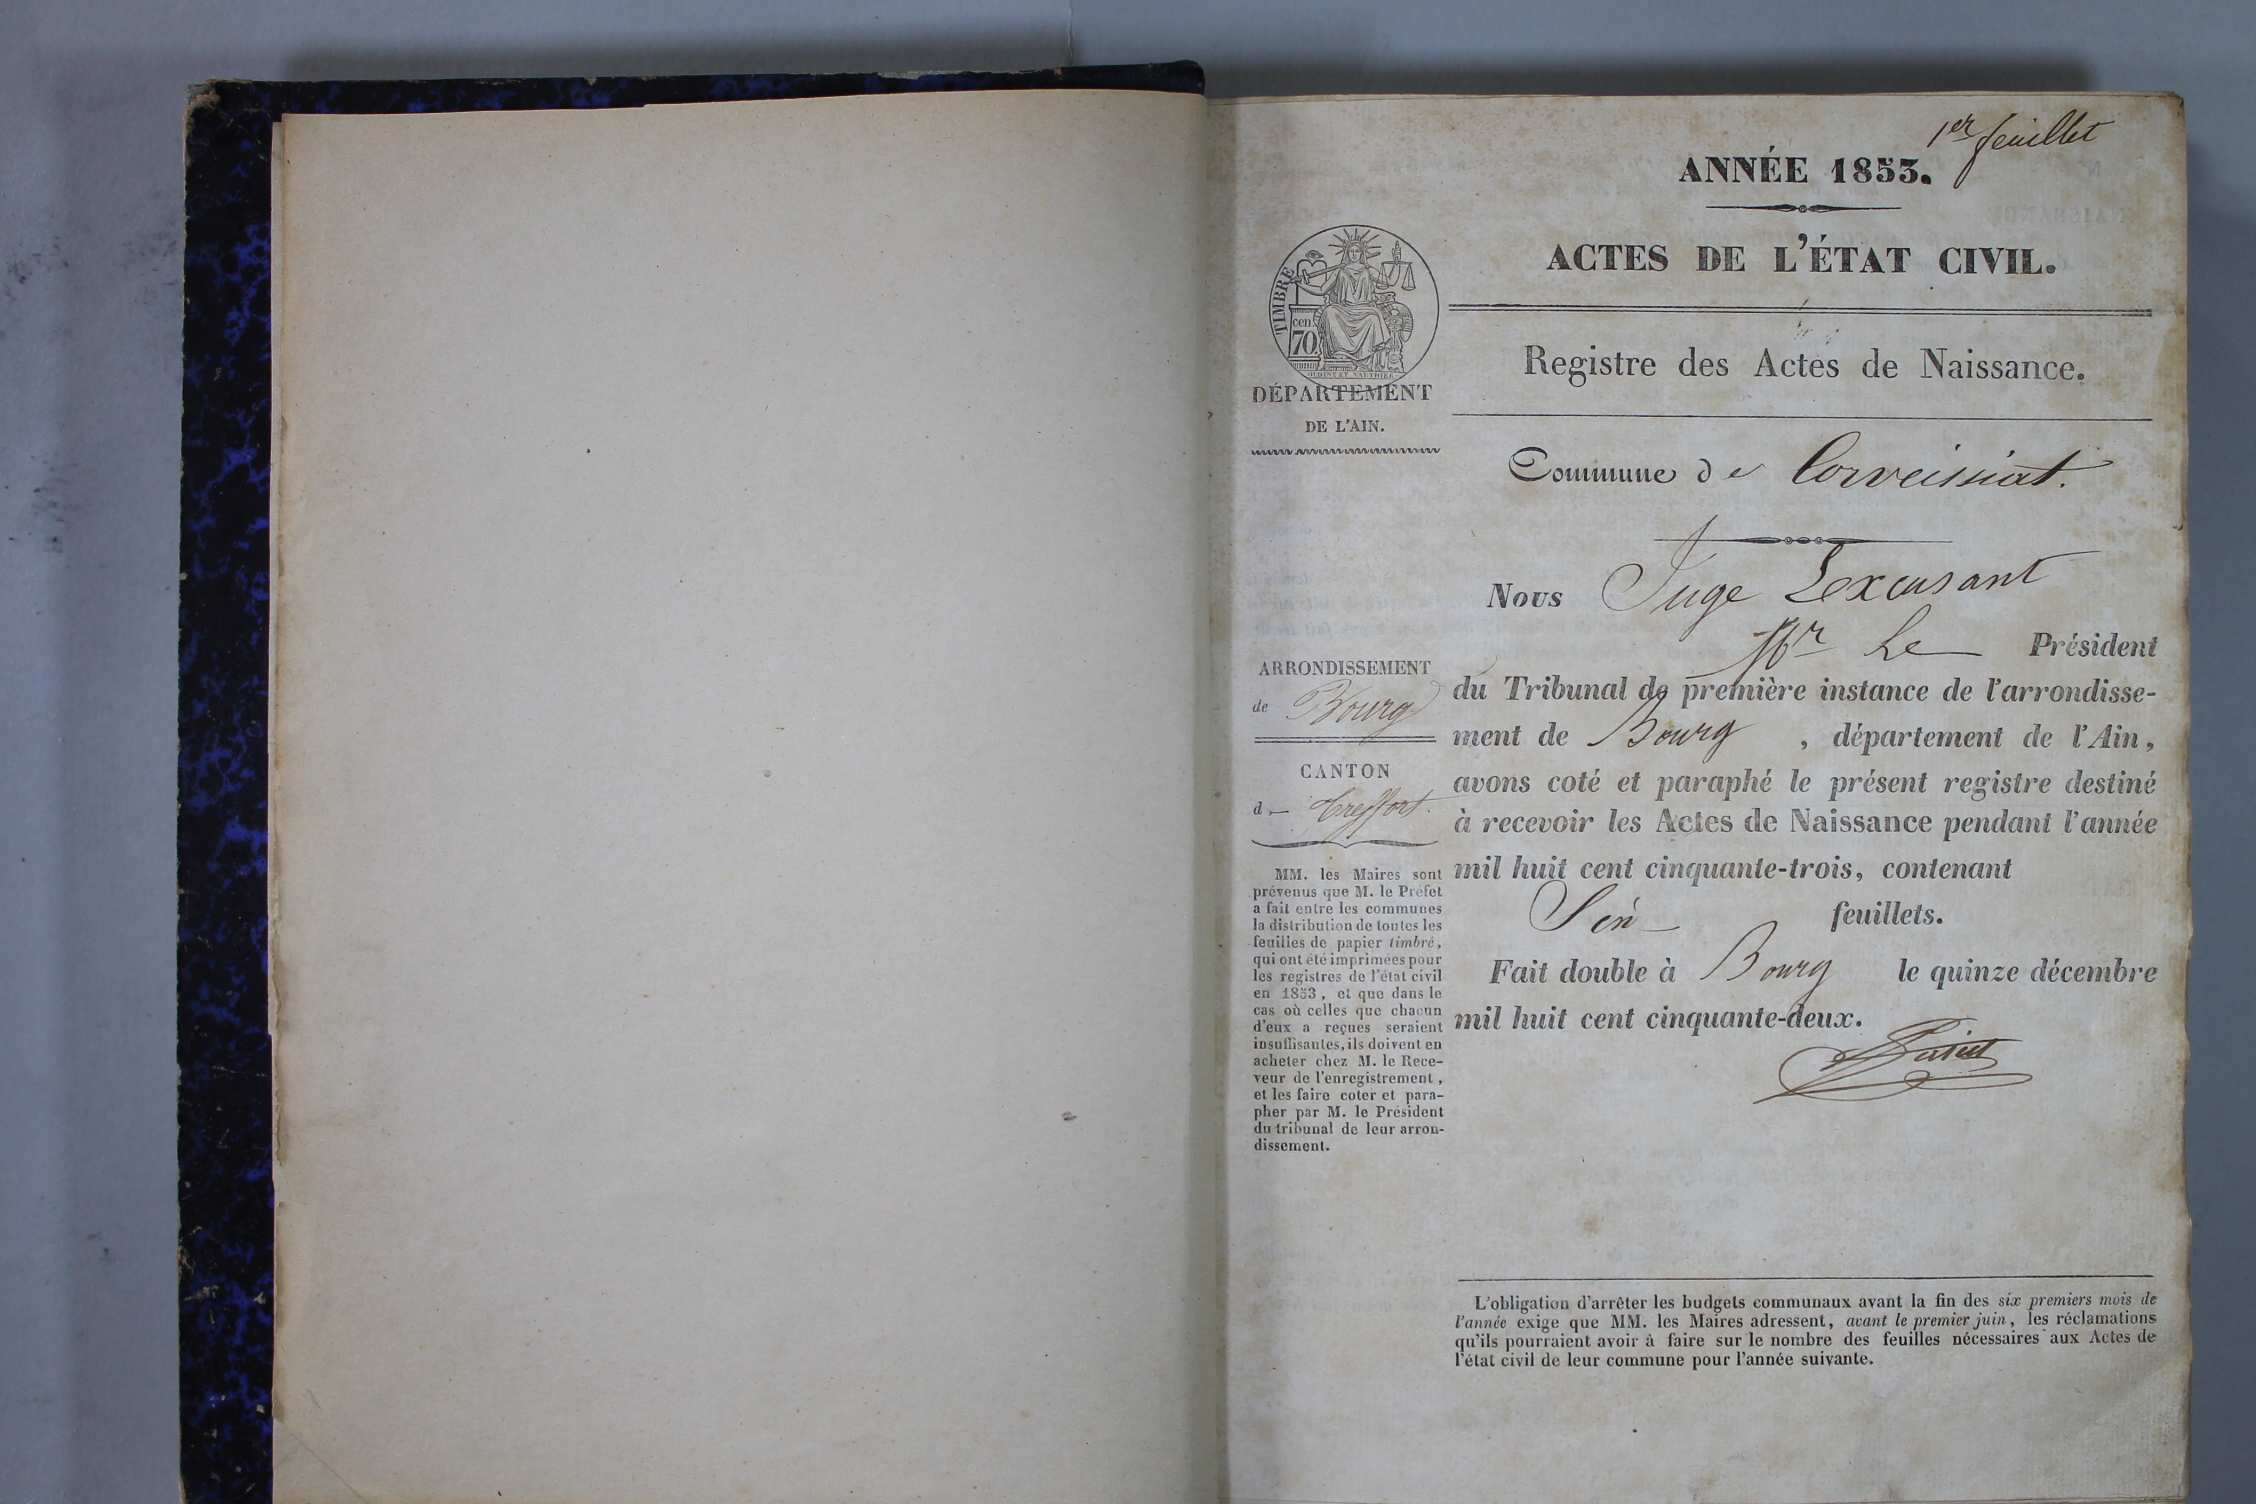 1er feuillet
ANNÉE 1853.
ACTES DE L'ÉTAT CIVIL.
TIMBRE
cen.
70
DÉPARTEMENT
DE L'AIN.
Registre des Actes de Naissance.
Commune de Corveissiat.
Nous Juge Lexcusant
Mr Le Président
du Tribunal de première instance de l'arrondisse-
ment de Bourg, département de l'Ain,
avons coté et paraphé le présent registre destiné
à recevoir les Actes de Naissance pendant l'année
mil huit cent cinquante-trois, contenant
feuillets.
Fait double à Bourg le quinze décembre
mil huit cent cinquante-deux.
ARRONDISSEMENT
de Bourg
CANTON
d Treffort.
MM. les Maires sont
prévenus que M. le Préfet
a fait entre les communes
la distribution de toutes les
feuilles de papier timbré,
qui ont été imprimées pour
les registres de l'état civil
en 1853, et que dans le
cas où celles que chacun
d'eux a reçues seraient
insuffisantes, ils doivent en
acheter chez M. le Rece-
veur de l'enregistrement,
et les faire coter et para-
pher par M. le Président
du tribunal de leur arron-
dissement.
L'obligation d'arrêter les budgets communaux avant la fin des six premiers mois de
l'année exige que MM. les Maires adressent, avant le premier juin, les réclamations
qu'ils pourraient avoir à faire sur le nombre des feuilles nécessaires aux Actes de
l'état civil de leur commune pour l'année suivante.